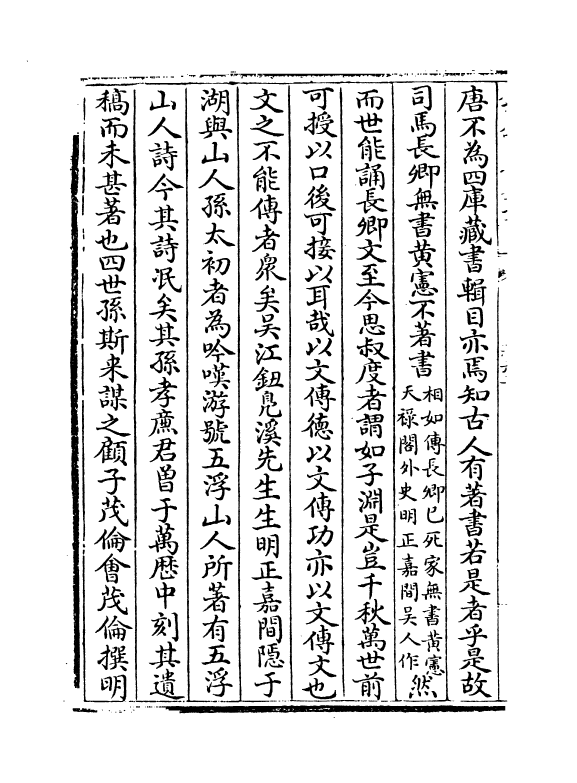 唐不為四庫藏書輯目亦焉知古人有著書若是者乎是故
司馬長卿無書黄憲不著書相如傳長卿已死家無書黄憲
天禄閣外史明正嘉間吳人作然
而世能誦長卿文至今思叔度者謂如子淵是豈千秋萬世前
可授以口後可接以耳哉以文傳德以文傳功亦以文傳文也
文之不能傳者衆矣吳江鈕鳬溪先生生明正嘉間隠于
湖與山人孫太初者為吟嘆游號五浮山人所著有五浮
山人詩今其詩泯矣其孫孝廉君曽于萬厯中刻其遺
稿而未甚著也四世孫斯来謀之顧子茂倫會茂倫撰明